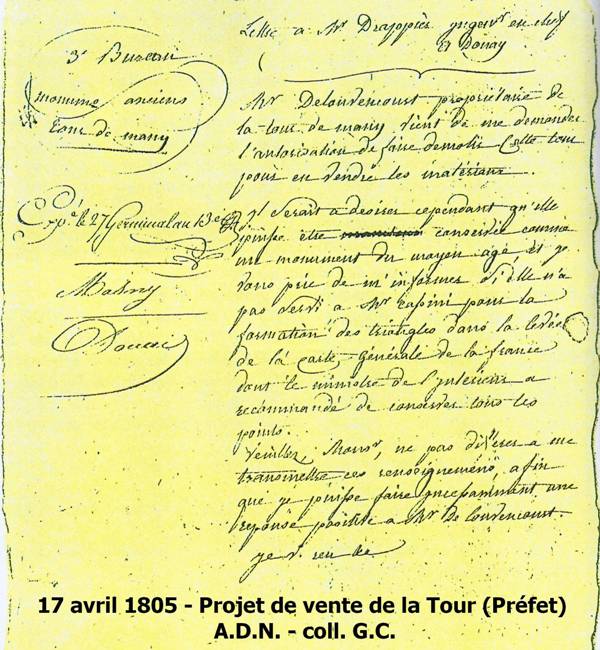 Lettre a Mr Drappiès ingenr en chef
a Douay
3e Bureau
monume anciens
Tour de marcy
Expé le 27 Germinal an 13
Mr Delouvencourt propriétaire de
la tour de marcy vient de me demander
l'autorisation de faire demolir cette tour
pour en vendre les matériaux.
Il serait a desirer cependant qu'elle
puisse etre conservée comme
un monument du moyen age, et je
vous prie de m'informer si elle n'a
pas servi a Mr Cassini pour la
formation des triangles dans la levée
de la Carte Générale de la france
dont le ministre de l'intérieur a
recommandé de conserver tous les
points.
Veuillez, Monsr, ne pas différer a me
transmettre ces renseignemens, afin
que je puisse faire incessamment une
reponse positive a Mr De Louvencourt.
je v. salue
Douai
17 avril 1805 - Projet de vente de la Tour (Préfet)
A.D.N. - coll. G.C.